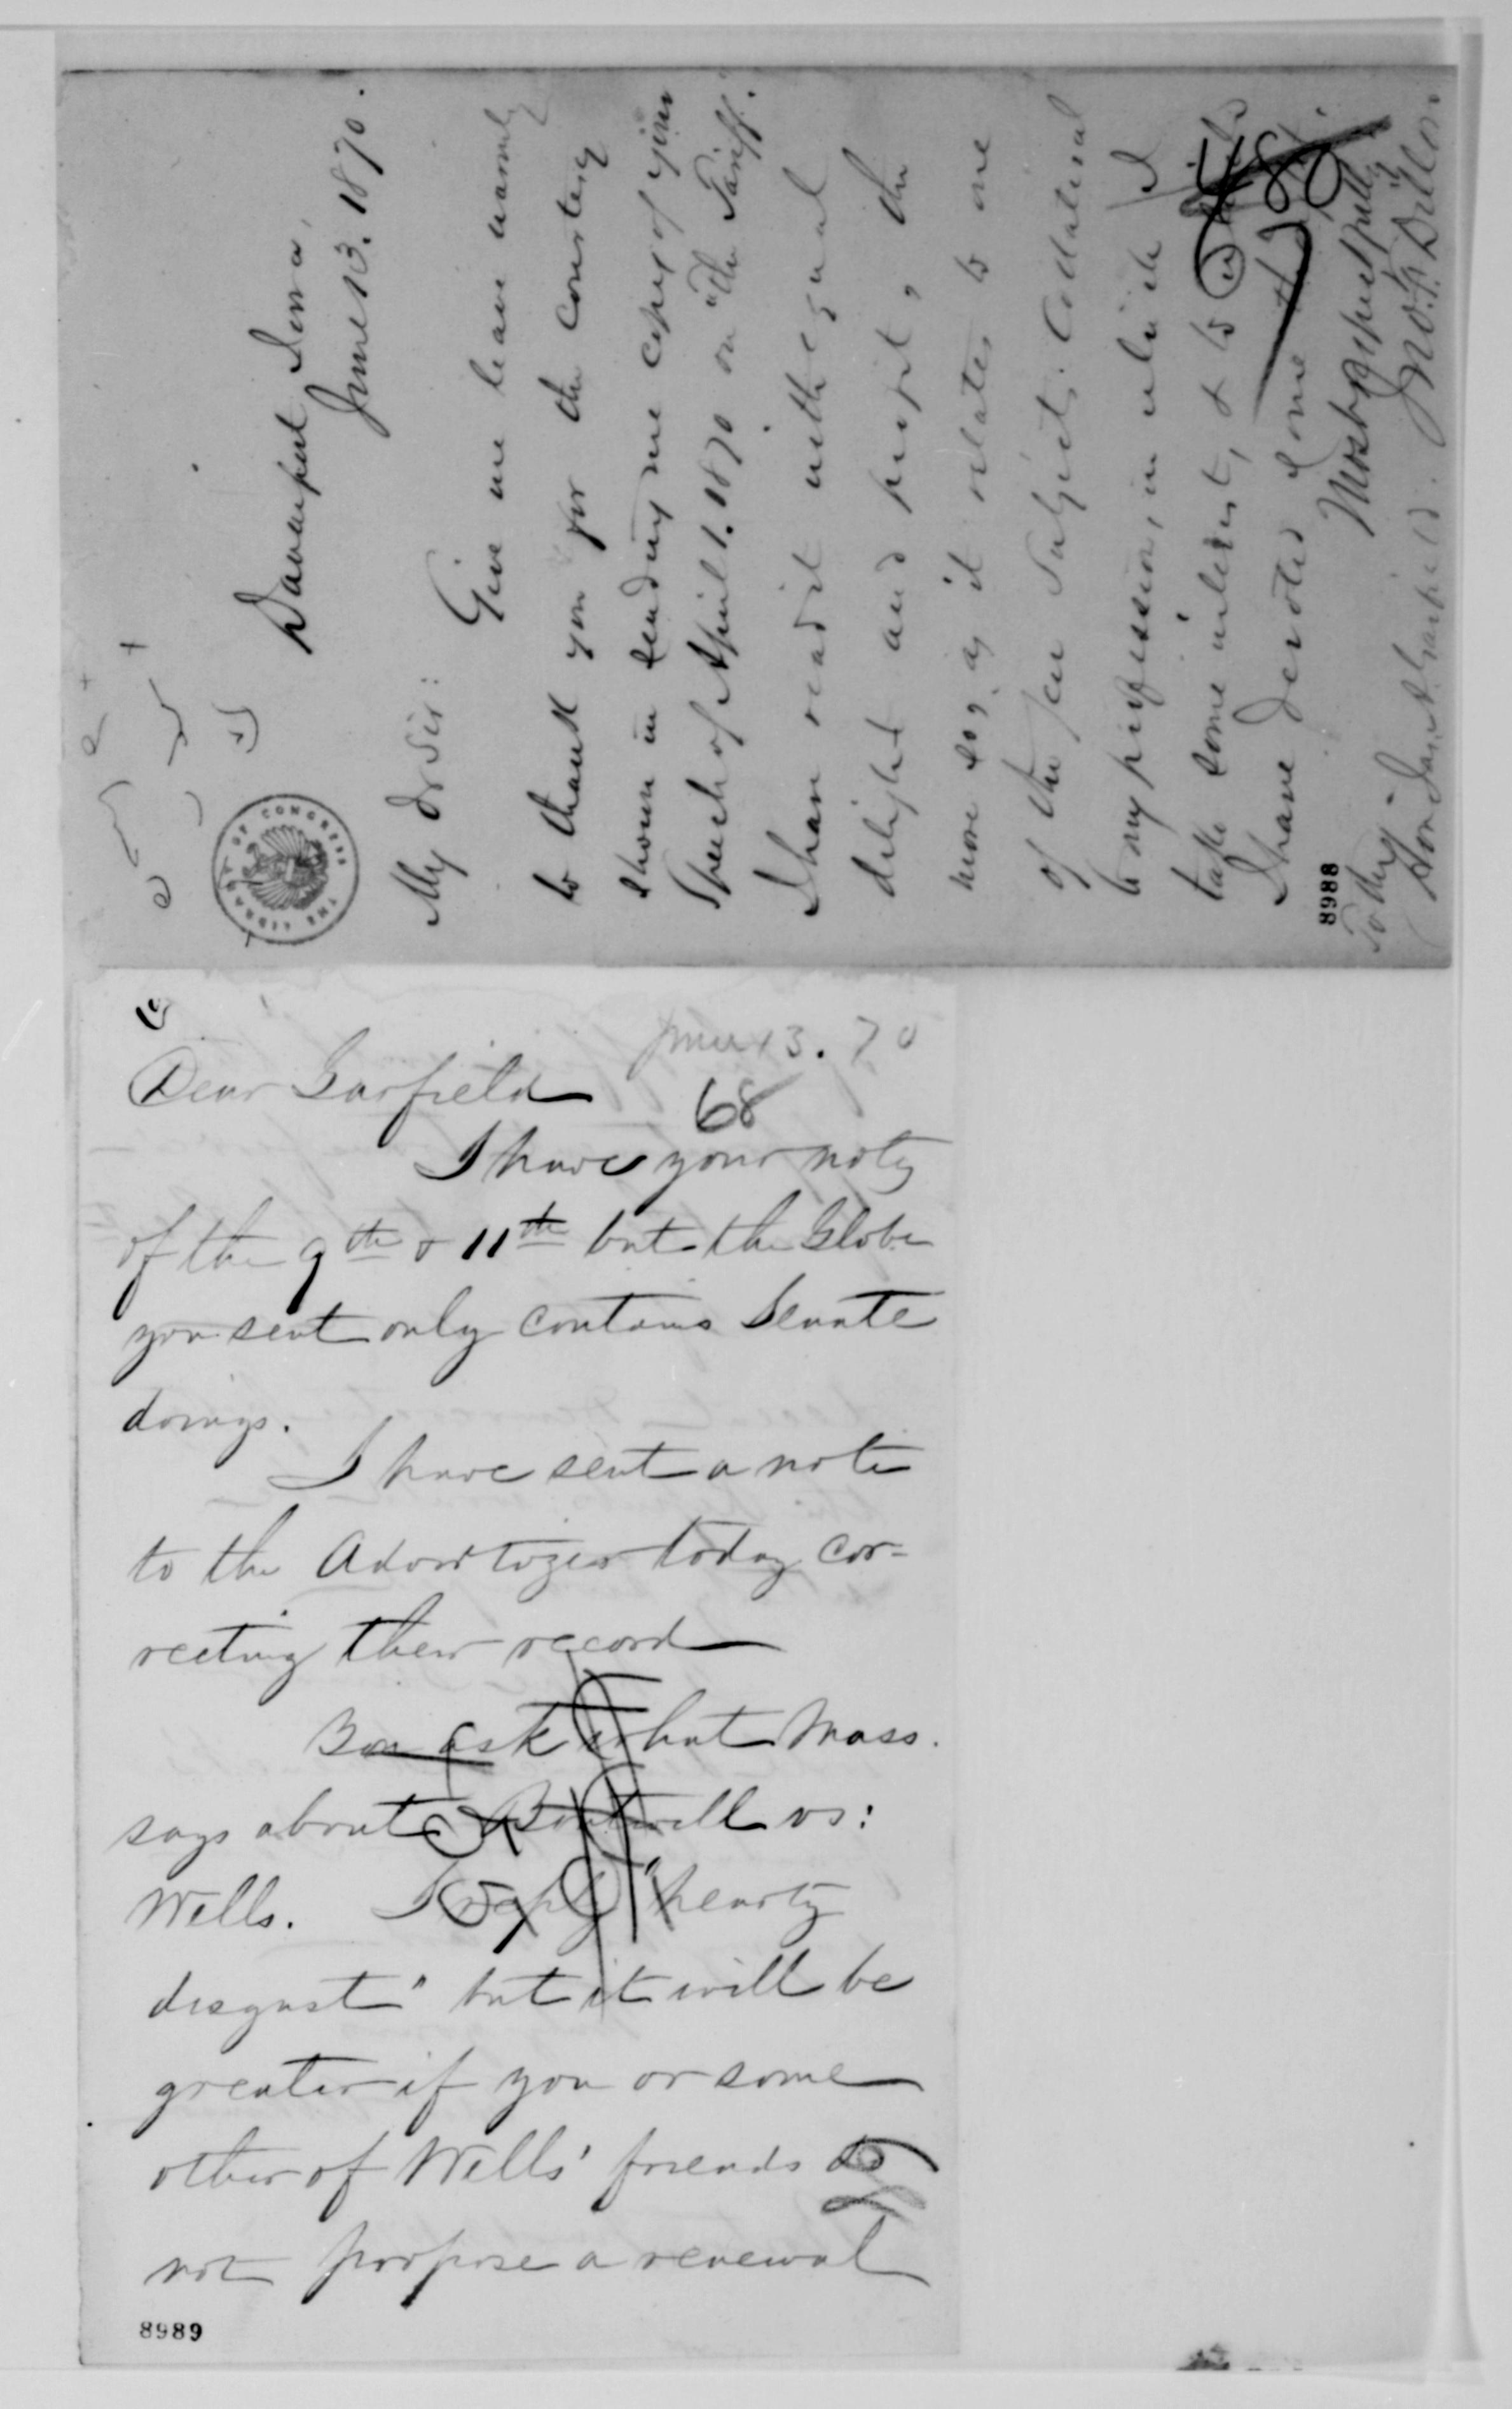 Davenport Iowa,
June 13. 1870.
My Dr Sir:
Give me leave warmly
to thank you for the courtesy
shown in sending me copy of your
Speech of April 1. 1870 on "The Tariff."
I have read it with equal
delight and profit, the
more so, as it relates to one
of the few subjects, collateral
to my profession, in which I
take some interest, & to which
I have devoted some
Most respectfully
Jno. F. Dillon
To the
Hon James A Garfield.
THE LIBRARY OF CONGRESS
8988
June 13. 70
Dear Garfield
68
I have your notes
of the 9th & 11th but the Globe
you sent only contains Senate
doings.
I have sent a note
to the Advertizer today cor=
recting their record
You ask what Mass.
says about Boutwell vs:
Wells. I reply "hearty
disgust" but it will be
greater if you or some
other of Wells' friends do
not propose a renewal
8989